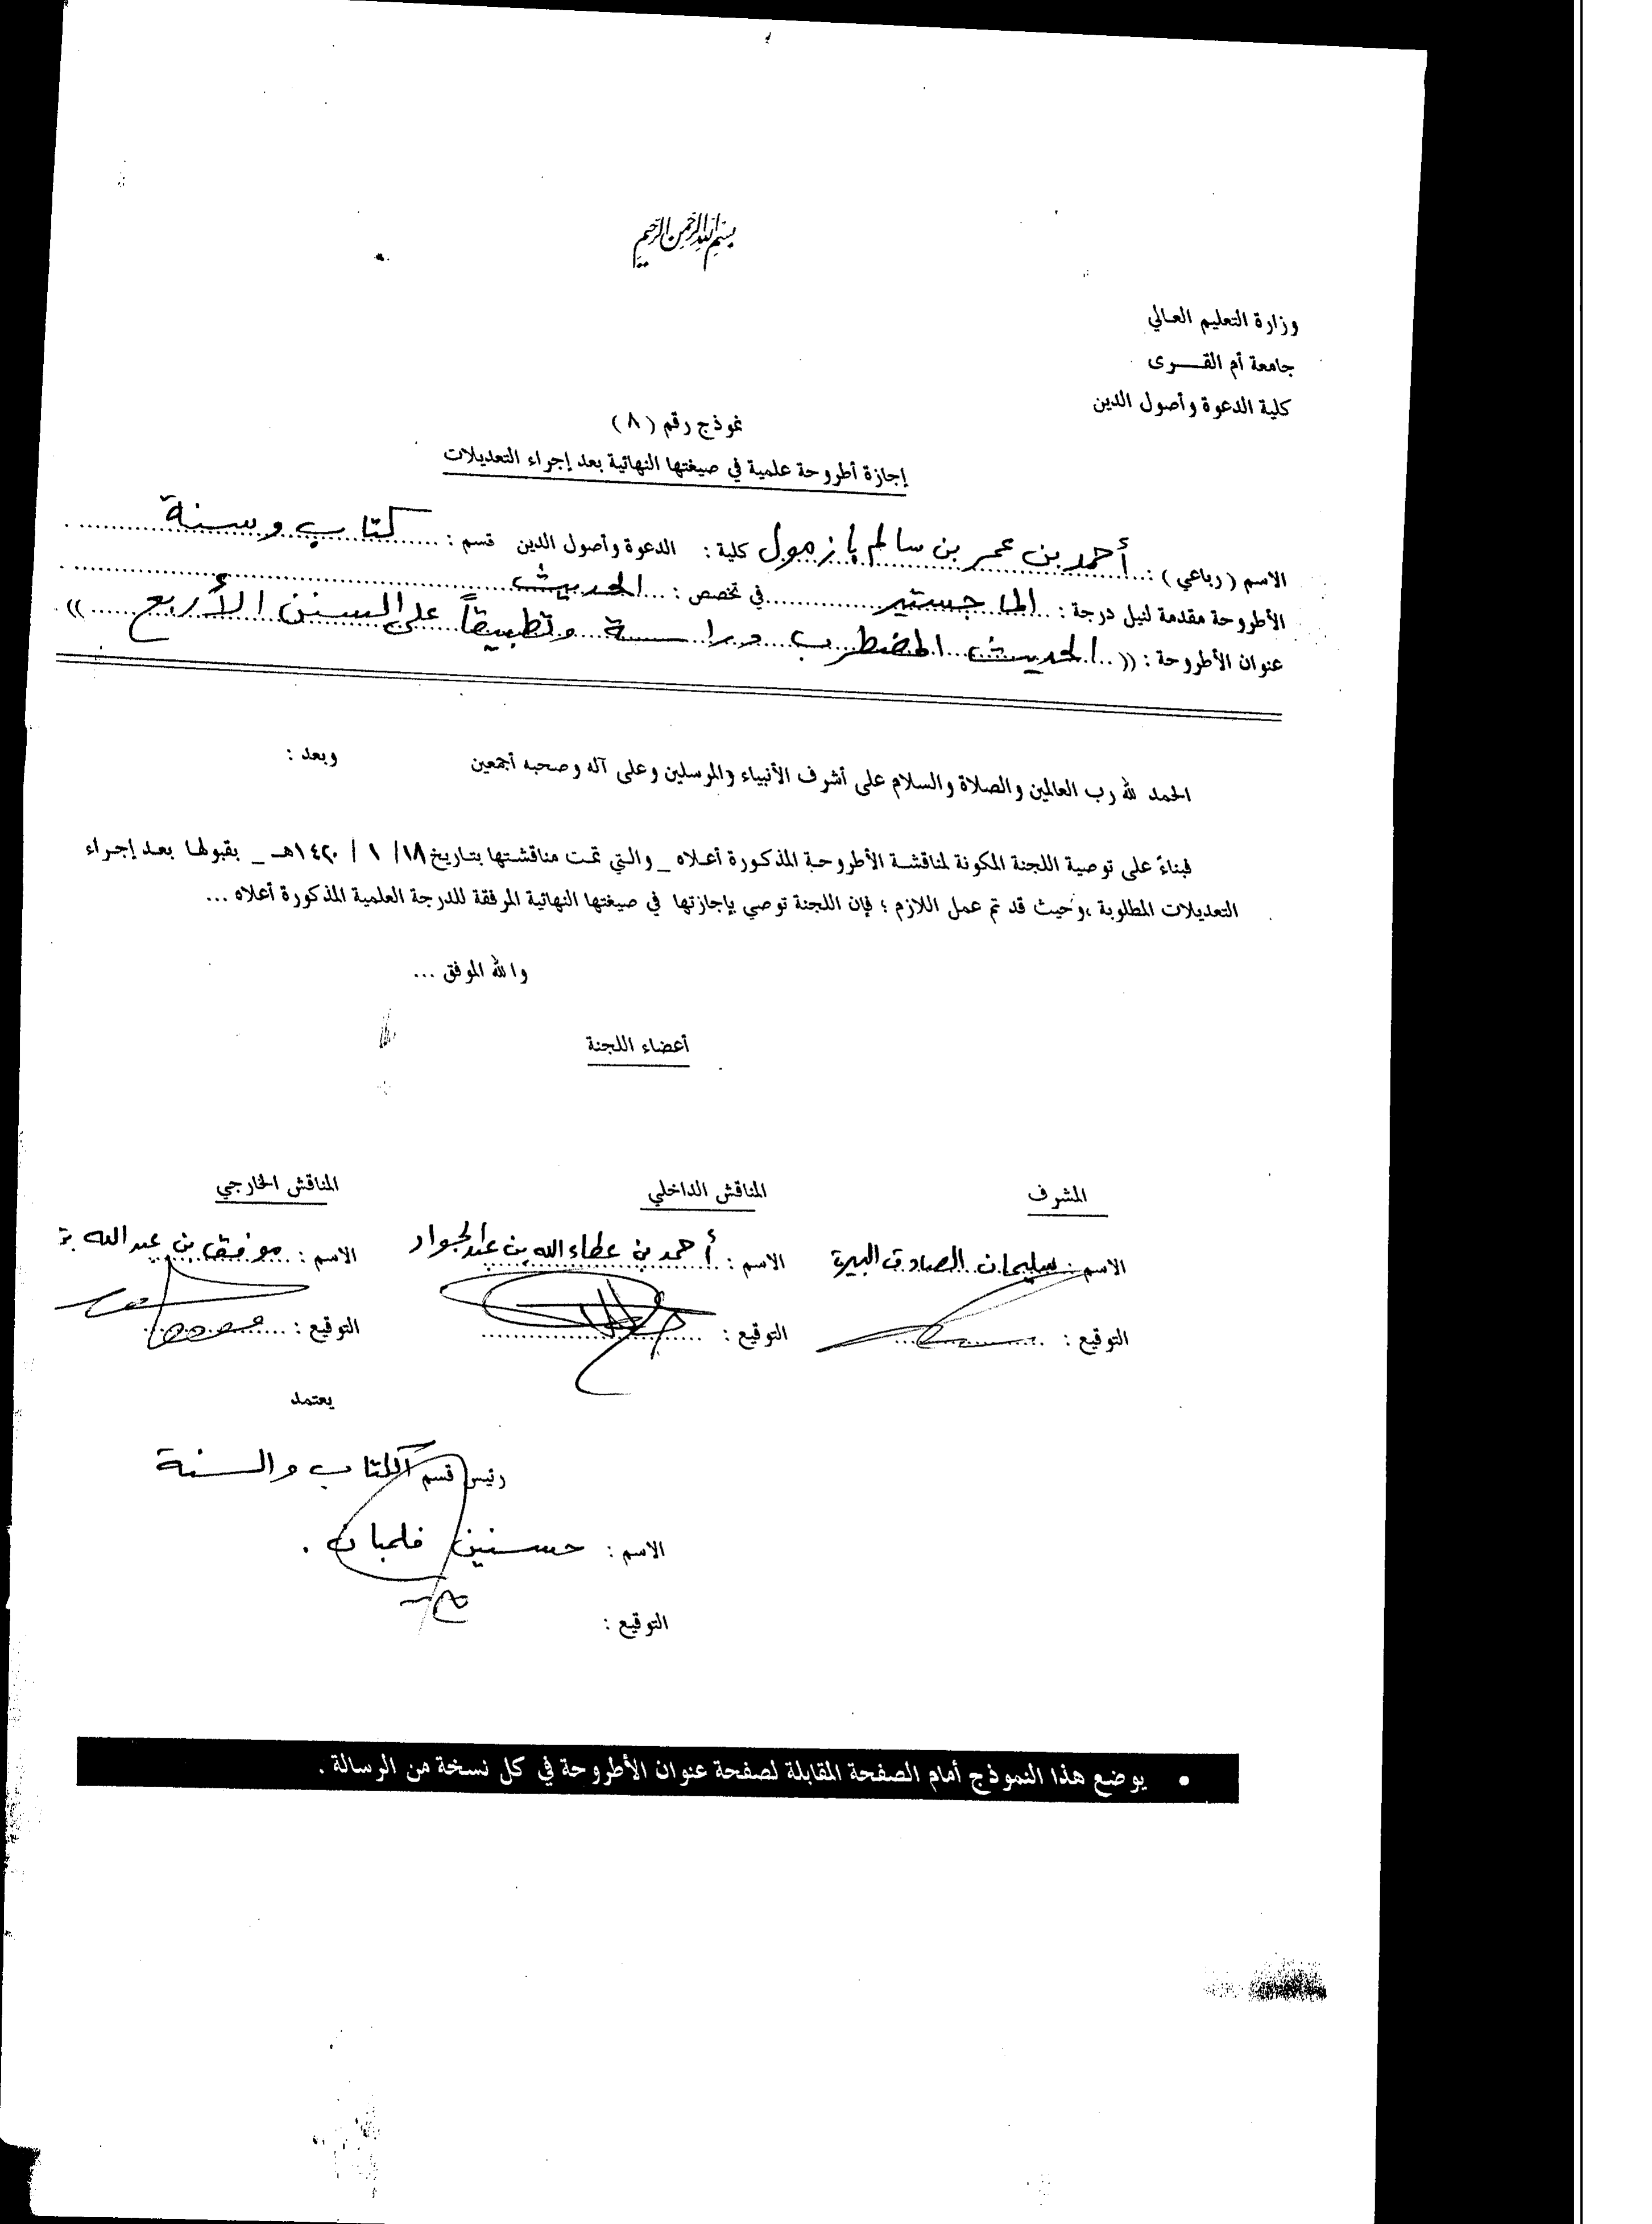 بسم الله الرحمن الرحيم
وزارة التعليم العالي
جامعة أم القـــرى
كلية الدعوة وأصول الدين
نموذج رقم ( ٨ )
إجازة أطروحة علمية في صيغتها النهائية بعد إجراء التعديلات
الاسم ( رباعي ) : أحمد بن عمر بن سالم بازمول كلية : الدعوة وأصول الدين قسم : كتاب وسنة
الأطروحة مقدمة لنيل درجة : الماجستير في تخصص : الحديث
عنوان الأطروحة : (( الحديث المضطرب دراسة وتطبيقاً على السنن الأربع ))
الحمد لله رب العالمين والصلاة والسلام على أشرف الأنبياء والمرسلين وعلى آله وصحبه أجمعين وبعد :
فبناءً على توصية اللجنة المكونة لمناقشة الأطروحة المذكورة أعلاه _ والتي تمت مناقشتها بتاريخ ١٨/ ١ / ١٤٢٠هـ _ بقبولها بعد إجراء
التعديلات المطلوبة ،وحيث قد تم عمل اللازم ؛ فإن اللجنة توصي بإجازتها في صيغتها النهائية المرفقة للدرجة العلمية المذكورة أعلاه ...
والله الموفق ...
أعضاء اللجنة
المشرف المناقش الداخلي المناقش الخارجي
الاسم : سليمان الصادق البيرة الاسم : أحمد بن عطاء الله بن عبد الجواد الاسم : موفق بن عبد الله
التوقيع : التوقيع : التوقيع :
يعتمد
رئيس قسم الكتاب والسنة
الاسم : حسنين فلمبان .
التوقيع :
• يوضع هذا النموذج أمام الصفحة المقابلة لصفحة عنوان الأطروحة في كل نسخة من الرسالة .